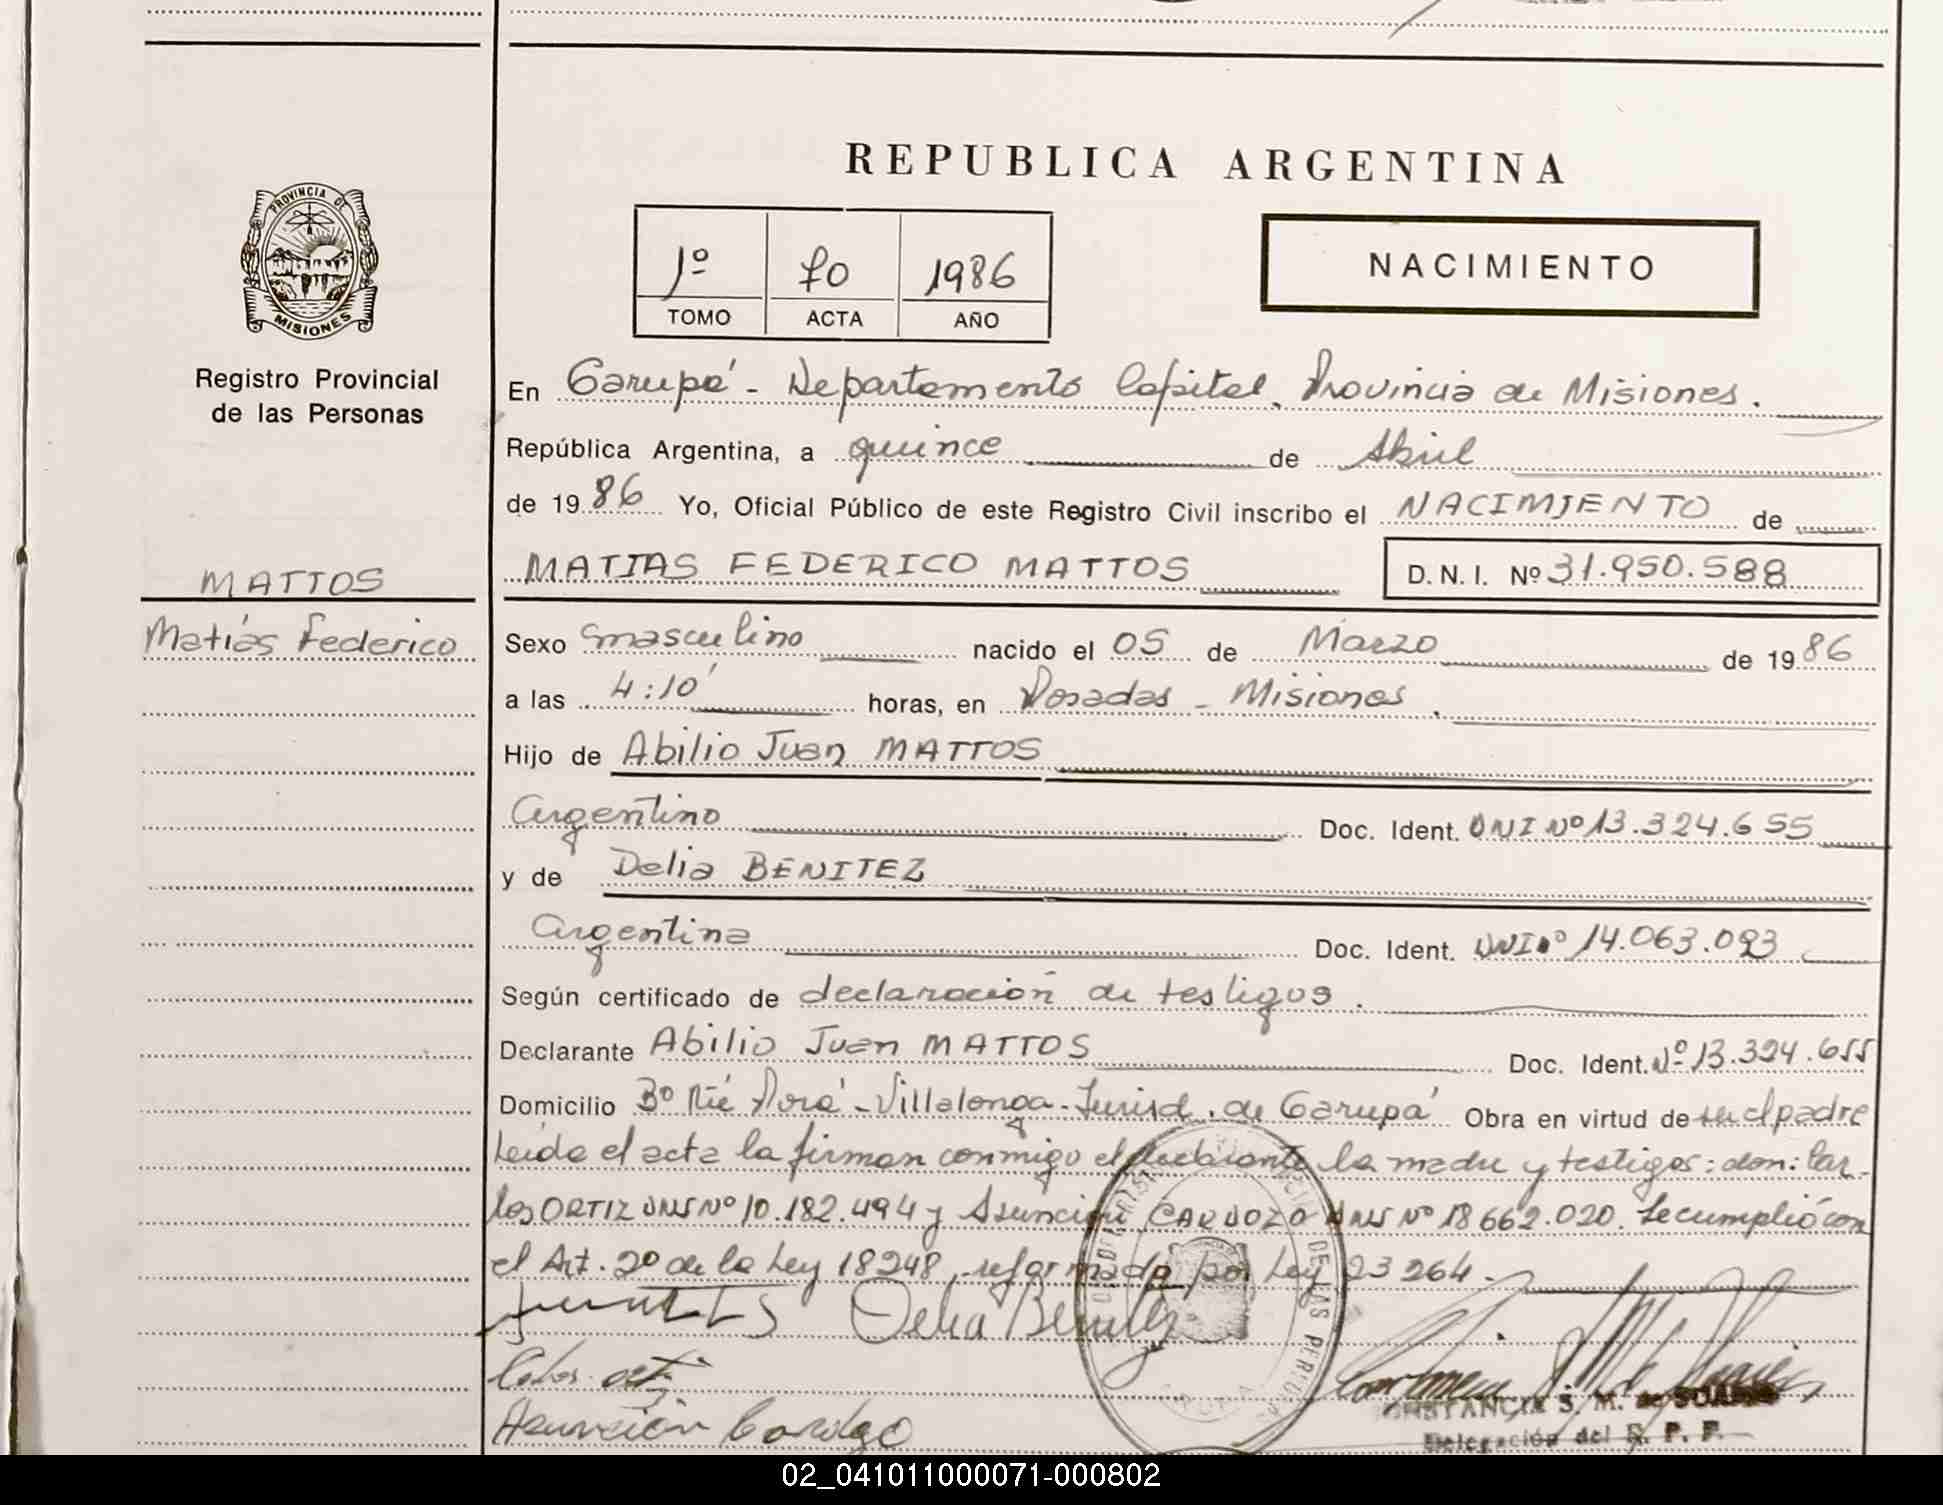 REPUBLICA ARGENTINA
PROVINCIA DE
MISIONES
Registro Provincial
de las Personas
1º 70 1986
TOMO ACTA AÑO
NACIMIENTO
En Garupá - Departamento Capital, Provincia de Misiones.
República Argentina, a quince de Abril
de 1986 Yo, Oficial Público de este Registro Civil inscribo el NACIMIENTO de
MATTOS
MATIAS FEDERICO MATTOS D.N.I. Nº 31.950.588
Matías Federico
Sexo masculino nacido el 05 de Marzo de 1986
a las 4:10' horas, en Posadas - Misiones.
Hijo de Abilio Juan MATTOS
argentino Doc. Ident. DNI Nº 13.324.655
y de Delia BENITEZ
argentina Doc. Ident. DNI Nº 14.063.093
Según certificado de declaración de testigos.
Declarante Abilio Juan MATTOS Doc. Ident. Nº 13.324.655
Domicilio Bº Ñú Porá - Villalonga - Jurisd. de Garupá Obra en virtud de ser el padre
Leída el acta la firman conmigo el declarante la madre y testigos: don: Car-
los ORTIZ DNI Nº 10.182.494 y Asunción CARDOZO DNI Nº 18662.020. Se cumplió con
el Art. 2º de la Ley 18248, reformado por Ley 23264.
Delia Benitez
Asunción Cardozo
CONSTANCIA S. M. de SUAREZ
Delegación del R. P. P.
02_041011000071-000802